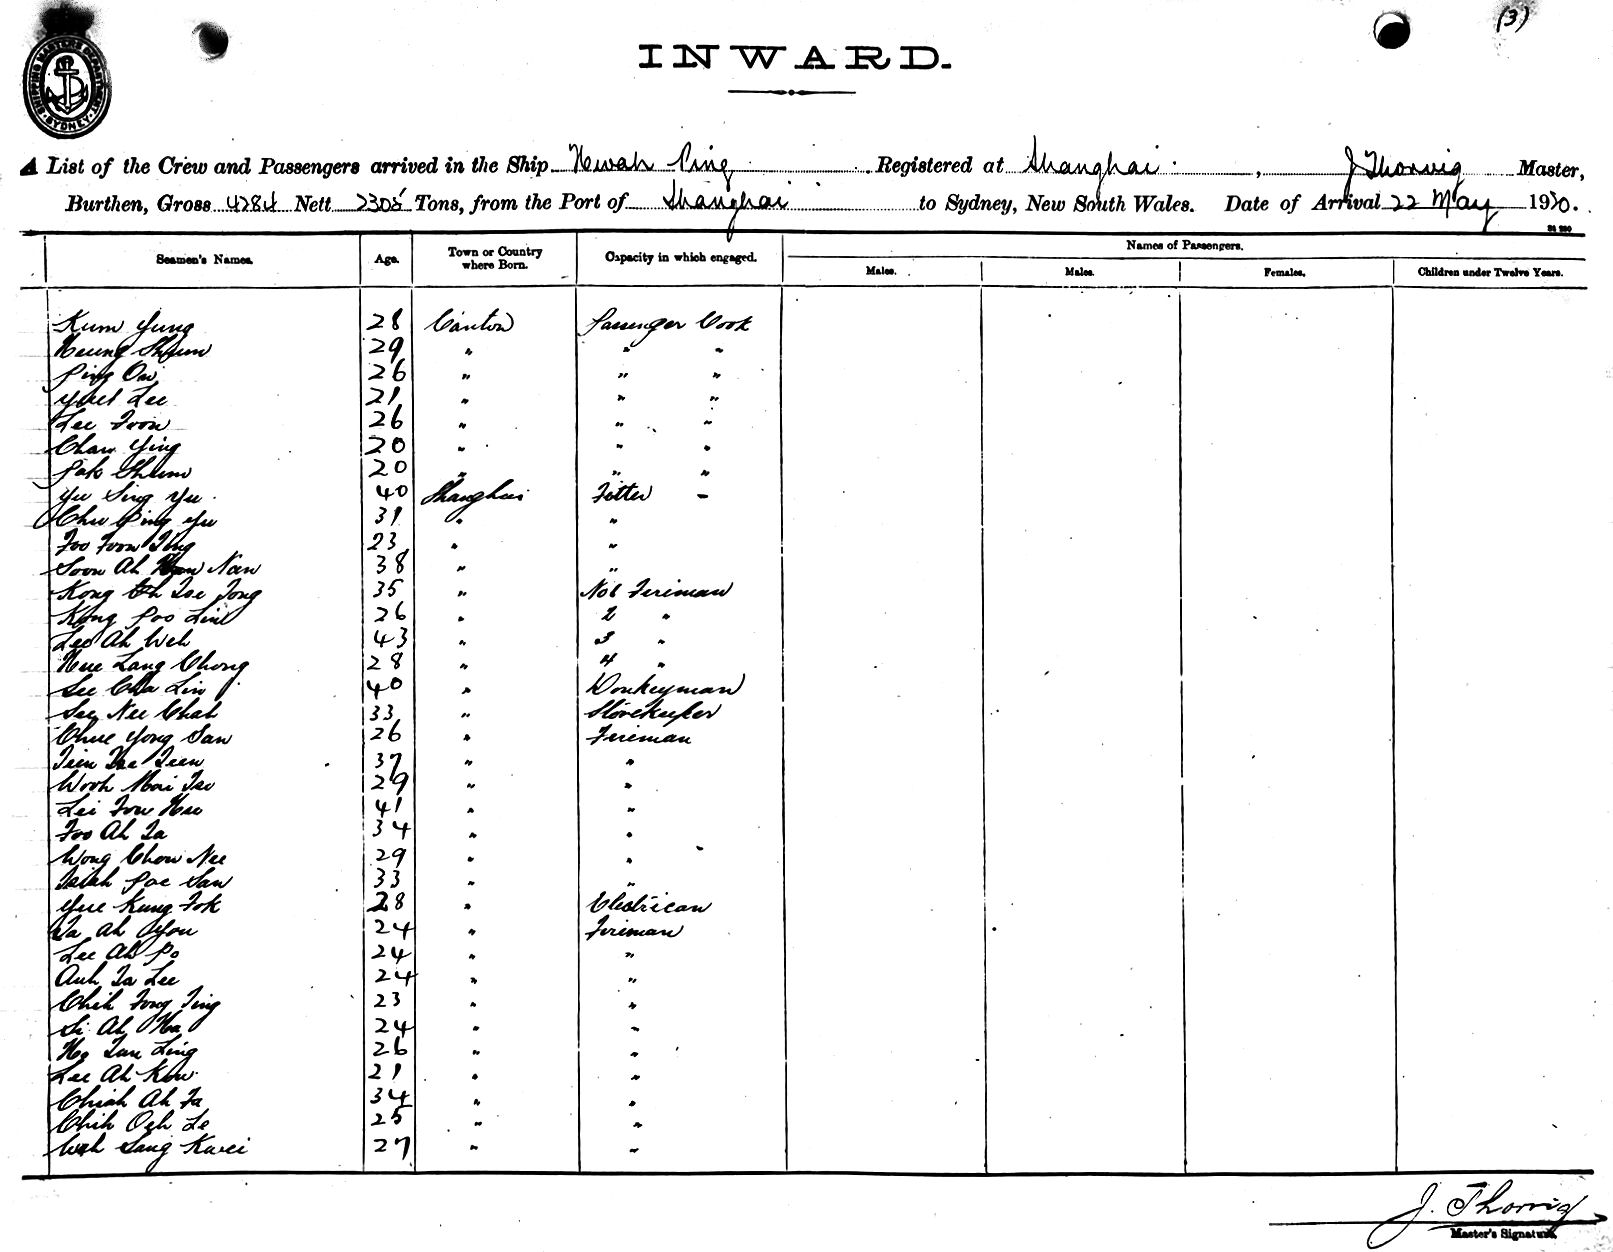 (3)
SHIPPING MASTERS DEPARTMENT SYDNEY
INWARD.
A List of the Crew and Passengers arrived in the Ship Hwah Ping Registered at Shanghai, J Thorvig Master,
Burthen, Gross 4284 Nett 2305 Tons, from the Port of Shanghai to Sydney, New South Wales. Date of Arrival 22 May 1920.
Seamen's Names. Age. Town or Country where Born. Capacity in which engaged. Names of Passengers.
Males. Males. Females. Children under Twelve Years.
Kum Yung 28 Canton Passenger Cook
Heung Shum 29 " " "
Ping Oni 26 " " "
Yuet Lee 21 " " "
Lee Foon 26 " " "
Chaw Ying 20 " " "
Pak Shum 20 " " "
Yu Sing Yu 40 Shanghai Fitter -
Chu Ping Yu 31 " "
Foo Foon Ting 23 " "
Soon Ah Nan 38 " "
Kong Tse Tong 35 " No 1 Fireman
Kong Poo Lin 26 " 2 "
Lee Ah Weh 43 " 3 "
Hue Lang Chong 28 " 4 "
See Cha Lin 40 " Donkeyman
See Nee Chah 33 " Storekeeper
Chue Yong San 26 " Fireman
Tien Tse Teen 37 " "
Wooh Mai Tse 29 " "
Lei Fow Hse 41 " "
Foo Ah Ta 34 " "
Wong Chow Nee 29 " "
Tsiah Poe San 33 " "
Yue Kung Fok 28 " Electrican
Ta Ah You 24 " Fireman
Lee Ah Po 24 " "
Auh Ta Lee 24 " "
Chih Fong Ting 23 " "
Si Ah Ha 24 " "
Ho Tan Ling 26 " "
Lee Ah Kow 21 " "
Chiah Ah Fa 34 " "
Chih Ogh Le 25 " "
Wah Sang Kwei 27 " "
J. Thorvig
Master's Signature.